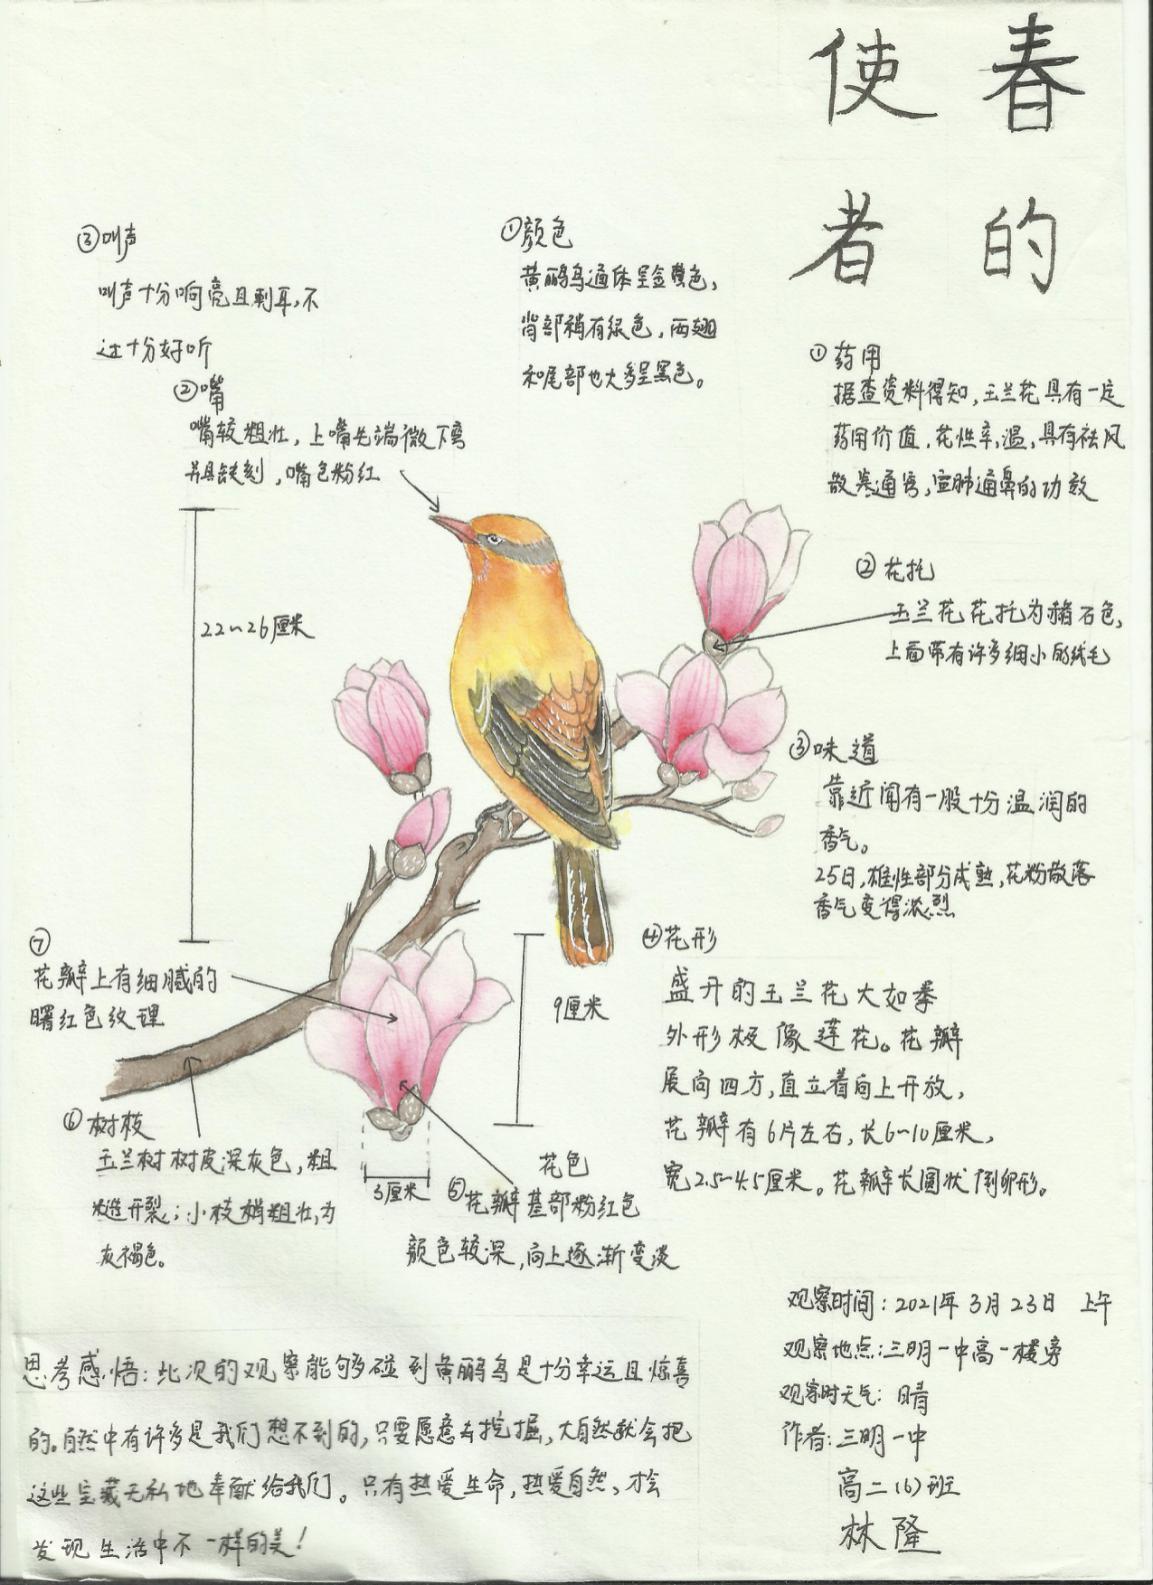 春的
使者
③叫声
叫声十分响亮且刺耳,不
过十分好听
①颜色
黄鹂鸟通体呈金黄色,
背部稍有绿色,两翅
和尾部也大多呈黑色。
②嘴
嘴较粗壮,上嘴先端微下弯
并具缺刻,嘴色粉红
22~26厘米
①药用
据查资料得知,玉兰花具有一定
药用价值,花性辛,温,具有祛风
散寒通窍,宣肺通鼻的功效
②花托
玉兰花花托为赭石色,
上面带有许多细小的绒毛
③味道
靠近闻有一股十分温润的
香气。
25日,雄性部分成熟,花粉散落
香气变得浓烈
④花形
盛开的玉兰花大如拳
外形极像莲花。花瓣
展向四方,直立着向上开放,
花瓣有6片左右,长6~10厘米,
宽2.5~4.5厘米。花瓣长圆状倒卵形。
⑦
花瓣上有细腻的
曙红色纹理
9厘米
3厘米
⑥树枝
玉兰树树皮深灰色,粗
糙开裂;小枝稍粗壮,为
灰褐色。
花色
⑤花瓣基部粉红色
颜色较深,向上逐渐变淡
思考感悟:此次的观察能够碰到黄鹂鸟是十分幸运且惊喜
的。自然中有许多是我们想不到的,只要愿意去挖掘,大自然就会把
这些宝藏无私地奉献给我们。只有热爱生命,热爱自然,才会
发现生活中不一样的美!
观察时间:2021年3月23日 上午
观察地点:三明一中高一楼旁
观察时天气:晴
作者:三明一中
高二(6)班
林隆